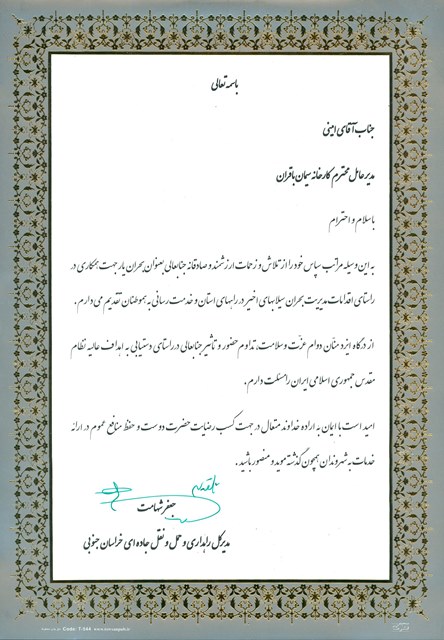 باسمه تعالی
جناب آقای امینی
مدیرعامل محترم کارخانه سیمان باقران
باسلام و احترام
به این وسیله مراتب سپاس خود را از تلاش و زحمات ارزشمند و صادقانه جنابعالی بعنوان بحران یار جهت همکاری در
راستای اقدامات مدیریت بحران سیلابهای اخیر در راههای استان و خدمت رسانی به هموطنان تقدیم می دارم.
از درگاه ایزد منان دوام عزت و سلامت، تداوم حضور و تاثیر جنابعالی در راستای دستیابی به اهداف عالیه نظام
مقدس جمهوری اسلامی ایران را مسئلت دارم.
امید است با ایمان به اراده خداوند متعال در جهت کسب رضایت حضرت دوست و حفظ منافع عموم در ارائه
خدمات به شهروندان همچون گذشته موید و منصور باشید.
جعفر شهامت
مدیرکل راهداری و حمل و نقل جاده ای خراسان جنوبی